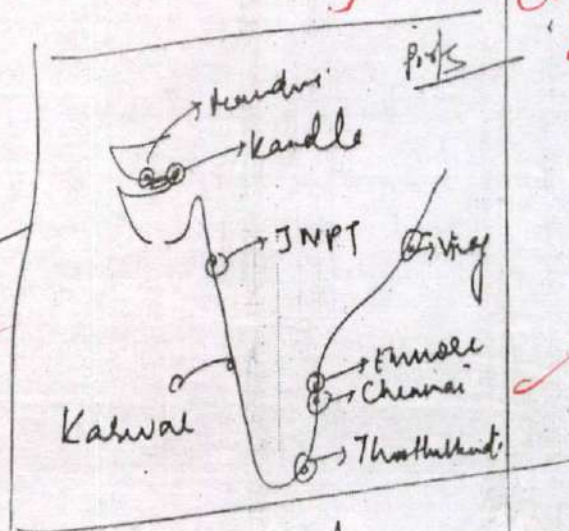 Ports
Kandla
JNPT
Vizag
Ennore
Chennai
Karwar
Thoothukudi